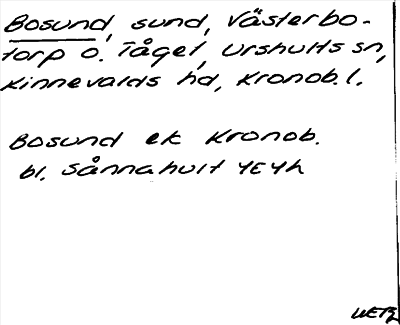 Bosund, sund, Västerbo-
torp o. Tåget, Urshults sn,
Kinnevalds hd, Kronob. l.
Bosund ek Kronob.
bl. Sånnahult 4E4h